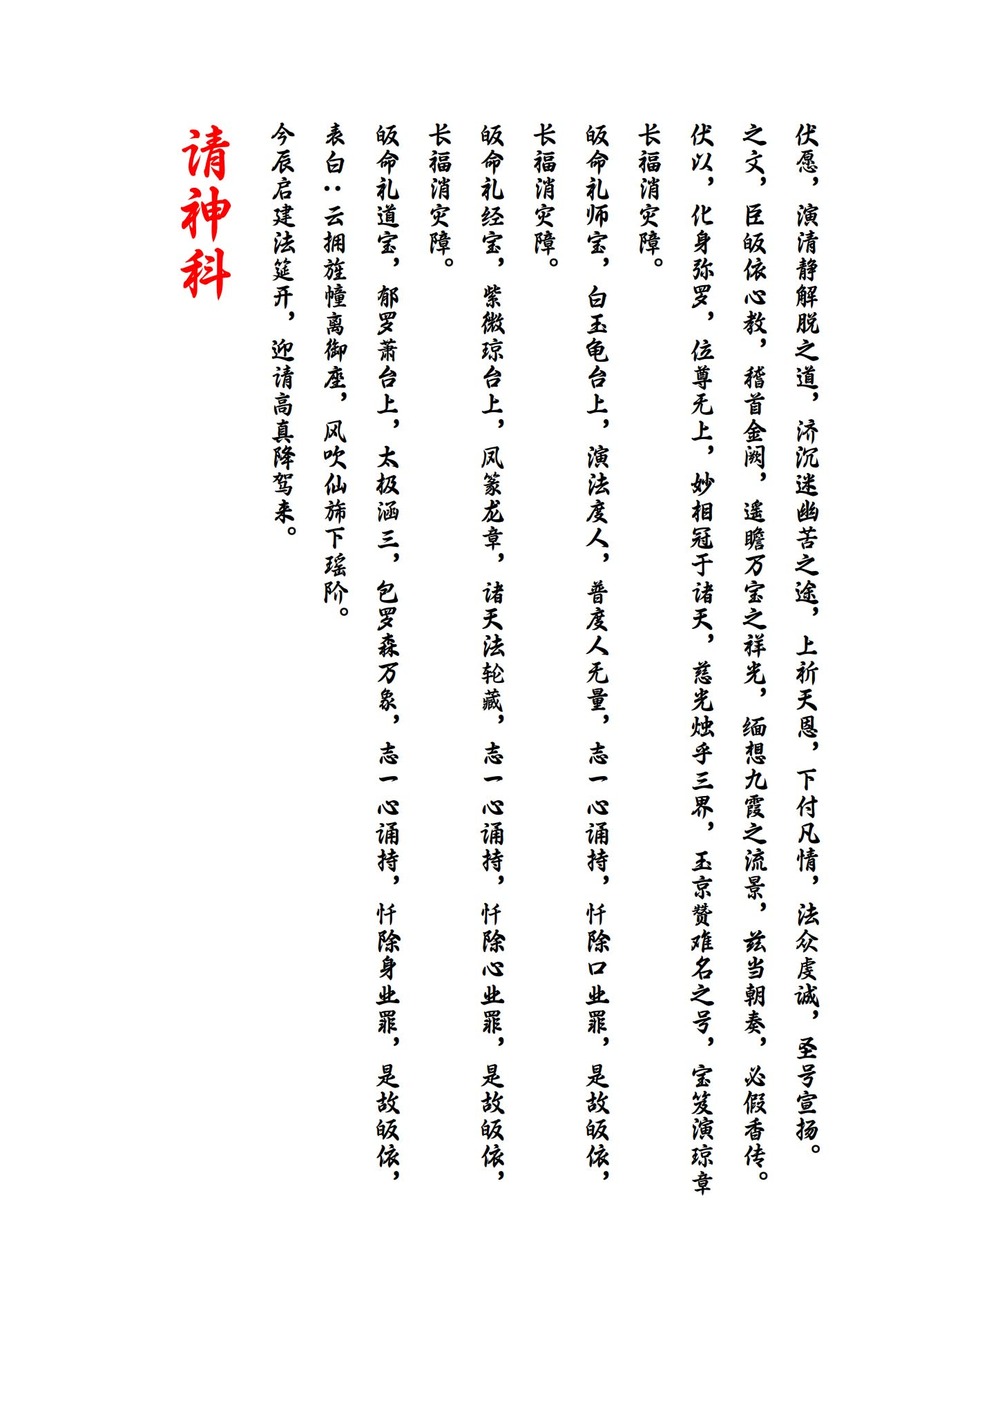 请神科
今辰启建法筵开，迎请高真降驾来。
表白：云拥旌幢离御座，风吹仙旆下瑶阶。
皈命礼道宝，郁罗萧台上，太极涵三，包罗森万象，志一心诵持，忏除身业罪，是故皈依，
长福消灾障。
皈命礼经宝，紫微琼台上，凤篆龙章，诸天法轮藏，志一心诵持，忏除心业罪，是故皈依，
长福消灾障。
皈命礼师宝，白玉龟台上，演法度人，普度人无量，志一心诵持，忏除口业罪，是故皈依，
长福消灾障。
伏以，化身弥罗，位尊无上，妙相冠于诸天，慈光烛乎三界，玉京赞难名之号，宝笈演琼章
之文，臣皈依心教，稽首金阙，遥瞻万宝之祥光，缅想九霞之流景，兹当朝奏，必假香传。
伏愿，演清静解脱之道，济沉迷幽苦之途，上祈天恩，下付凡情，法众虔诚，圣号宣扬。